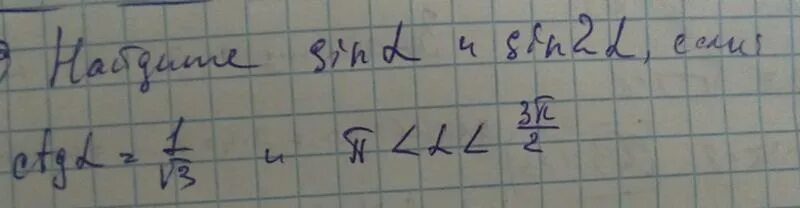 Найдите sin α и sin 2α, если
ctg α = 1/√3 и π < α < 3π/2